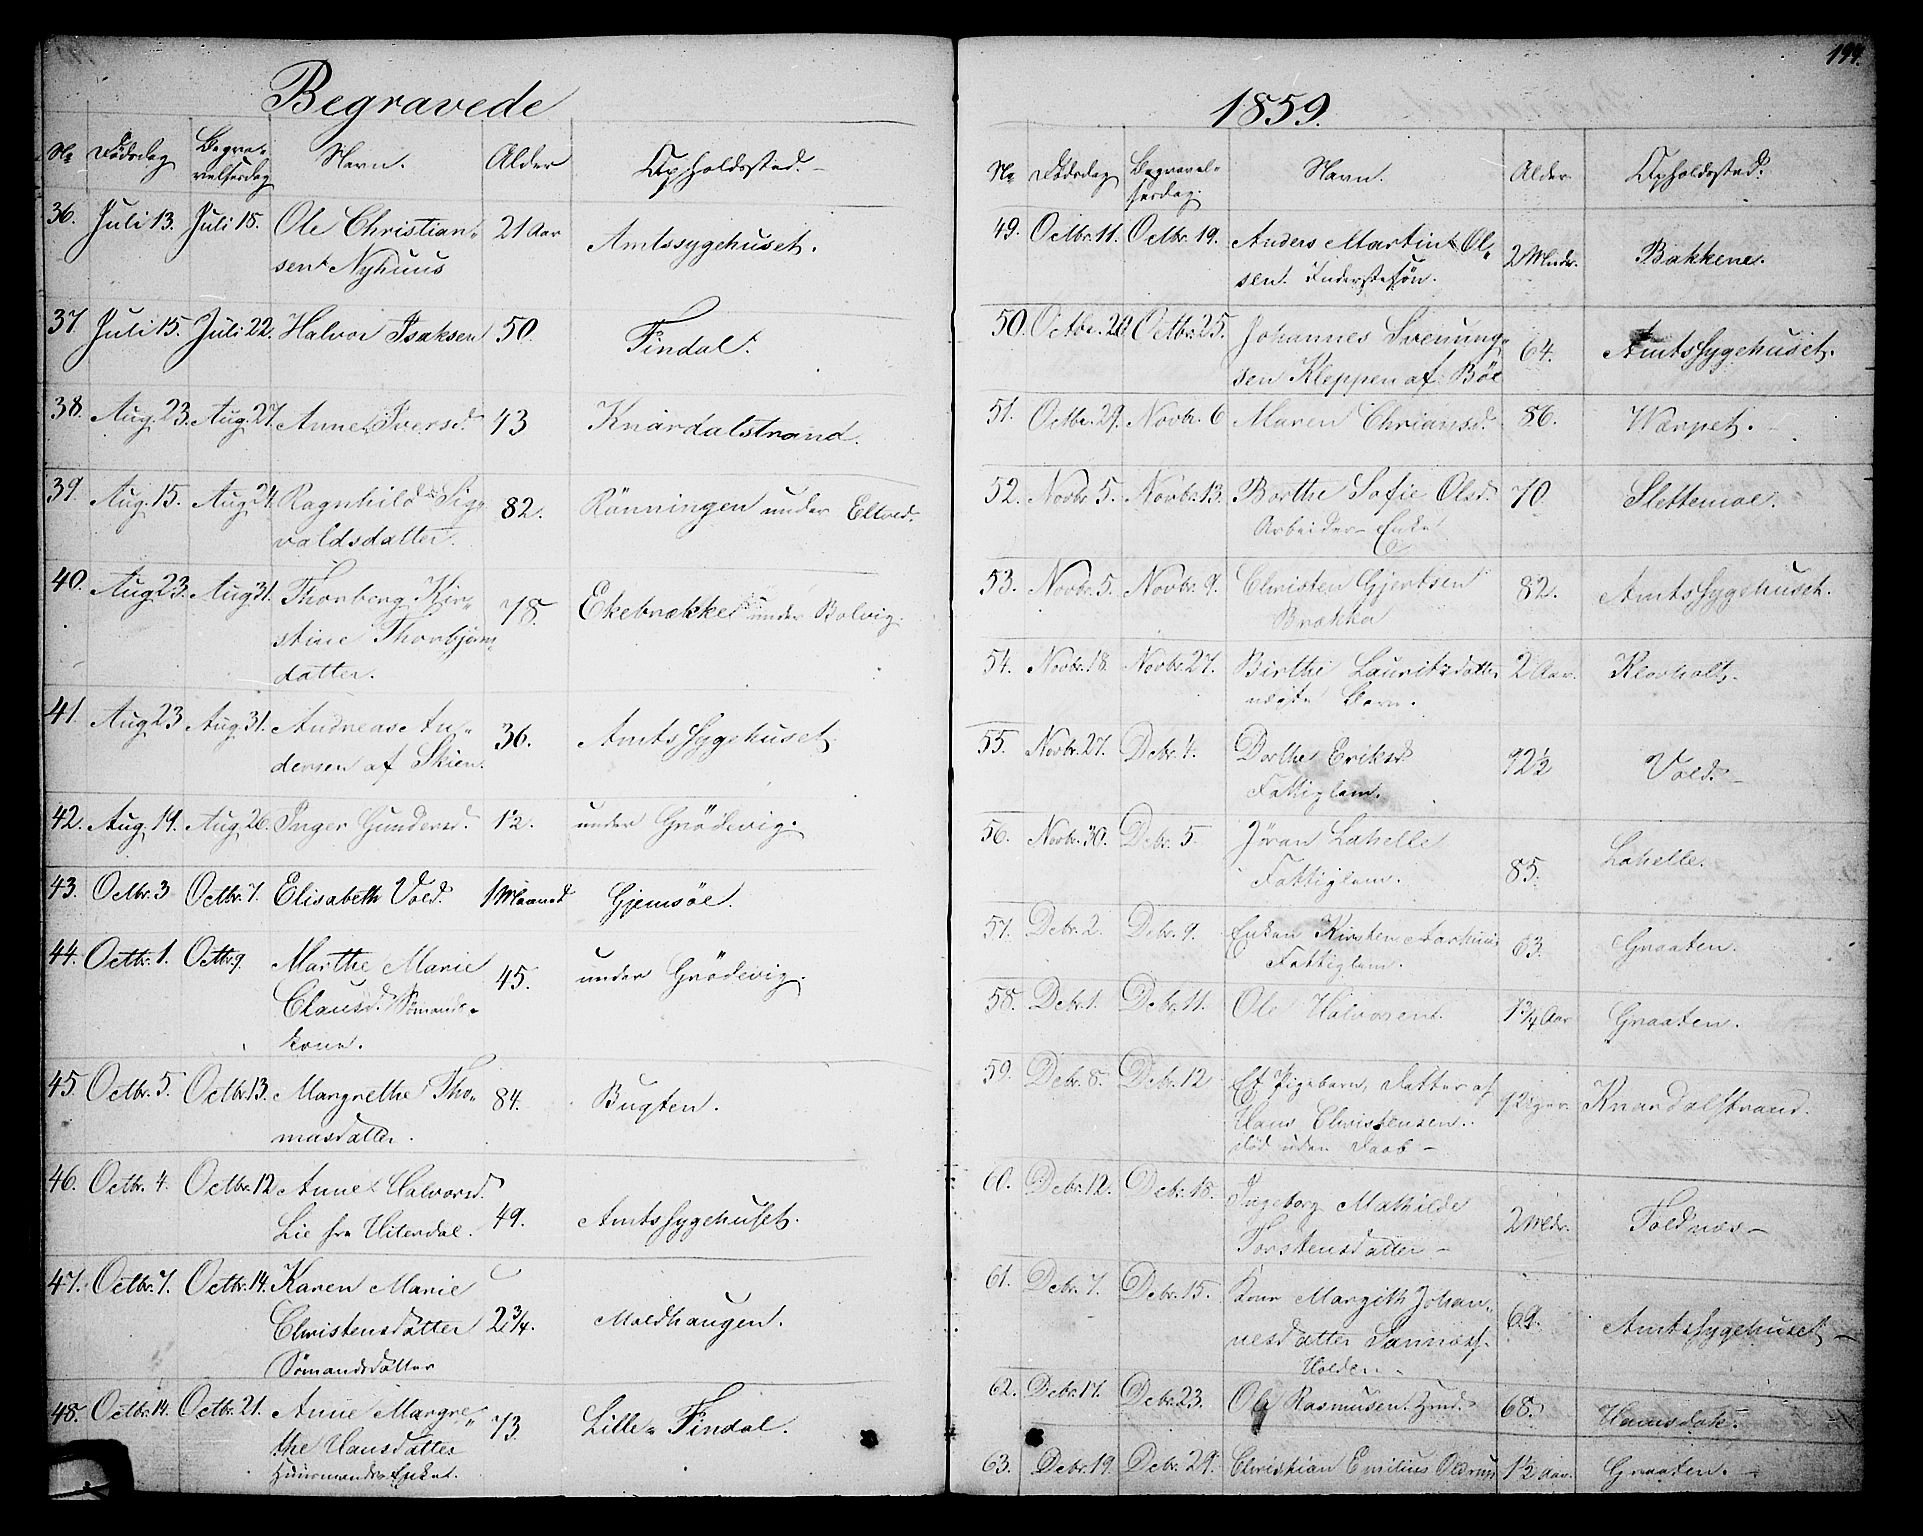 Begravede
No Dødsdag Begra-
velsesdag Navn. Alder Opholdssted.
36. Juli 13. Juli 18. Ole Christian-
sen Nyhuus 21 Aar Amtssygehuset.
37 Juli 15. Juli 22. Halvor Isaksen 50. Findal.
38. Aug. 23. Aug. 27. Anne Iversd. 43 Knardalstrand.
39. Aug. 15. Aug. 24. Ragnhild Sig-
valdsdatter. 82. Rönningen under Eltved.
40. Aug 23. Aug 31. Thorberg Kir-
stine Thorbjørns
datter. 78. Ekebrække under Bolvig.
41. Aug 23 Aug. 31. Andreas An-
dersen af Skien. 36. Amtssygehuset
42. Aug. 19. Aug 26. Inger Gundersd. 12. under Grödevig.
43. Octbr. 3 Octbr. 7. Elisabeth Vold. 1 Maaned Gjemsöe.
44. Octbr. 1. Octbr 9. Marthe Marie
Clausd. Sømands-
kone. 45. under Grödevig.
45. Octbr. 5. Octbr. 13. Margrethe Tho-
masdatter. 84. Bugten.
46. Octbr. 4. Octbr. 12 Anne Halvorsd.
Lie fra Hiterdal. 49. Amtssygehuset.
47. Octbr. 7. Octbr. 14. Karen Marie
Christensdatter
Sömandsdatter 2 3/4. Moldhaugen.
48. Octbr. 14. Octbr. 21. Anne Margre-
the Hansdatter
Huusmands Enke. 73 Lille Findal.
1859.
199.
No Dødsdag Begravel-
sesdag. Navn. Alder. Opholdssted.
49. Octbr. 11. Octbr. 19. Anders Martin Ol-
sen. Inderstesøn. 2 Mndr. Bakkene.
50. Octbr. 20 Octbr. 25. Johannes Svenung-
sen Kleppen af Böe 64. Amtssygehuset.
51. Octbr. 29. Novbr. 6 Maren Chriansd. 86. Værpet.
52. Novbr. 5. Novbr. 13. Berthe Sofie Olsd.
Arbeider-Enke 70. Slettemoe.
53. Novbr. 5. Novbr. 9. Christen Gjertsen
Brækka 82. Amtssygehuset.
54. Novbr. 18. Novbr. 27. Birthe Lauritzdatter
uægte Barn. 2 Aar. Klovholt.
55. Novbr. 27. Debr. 4. Dorthe Eriksd.
Fattiglem. 92 1/2 Vold.
56. Novbr. 30. Debr. 5. Jöran Lahelle
Fattiglem. 85. Lahelle.
57. Debr. 2. Debr. 9. Enken Kirsten Aarhuus
Fattiglem. 63. Graaten.
58. Debr. 1. Debr. 11. Ole Halvorsen. 1 3/4 Aar Graaten.
59. Debr. 8. Debr. 12 Et Pigebarn, Datter af
Hans Christensen.
død uden Daab Knardalstrand.
60. Debr. 12. Debr. 18. Ingeborg Mathilde
Torstensdatter 2 Mdr. Foldnæs
61. Debr. 7. Debr. 15. Kone Margith Johan-
nesdatter
Holden 69. Amtssygehuset
62. Debr. 17. Debr. 23. Ole Rasmusen. 68.
63. Debr. 19. Debr. 29. Christhian Emilius 1 1/2 Aar. Graaten.